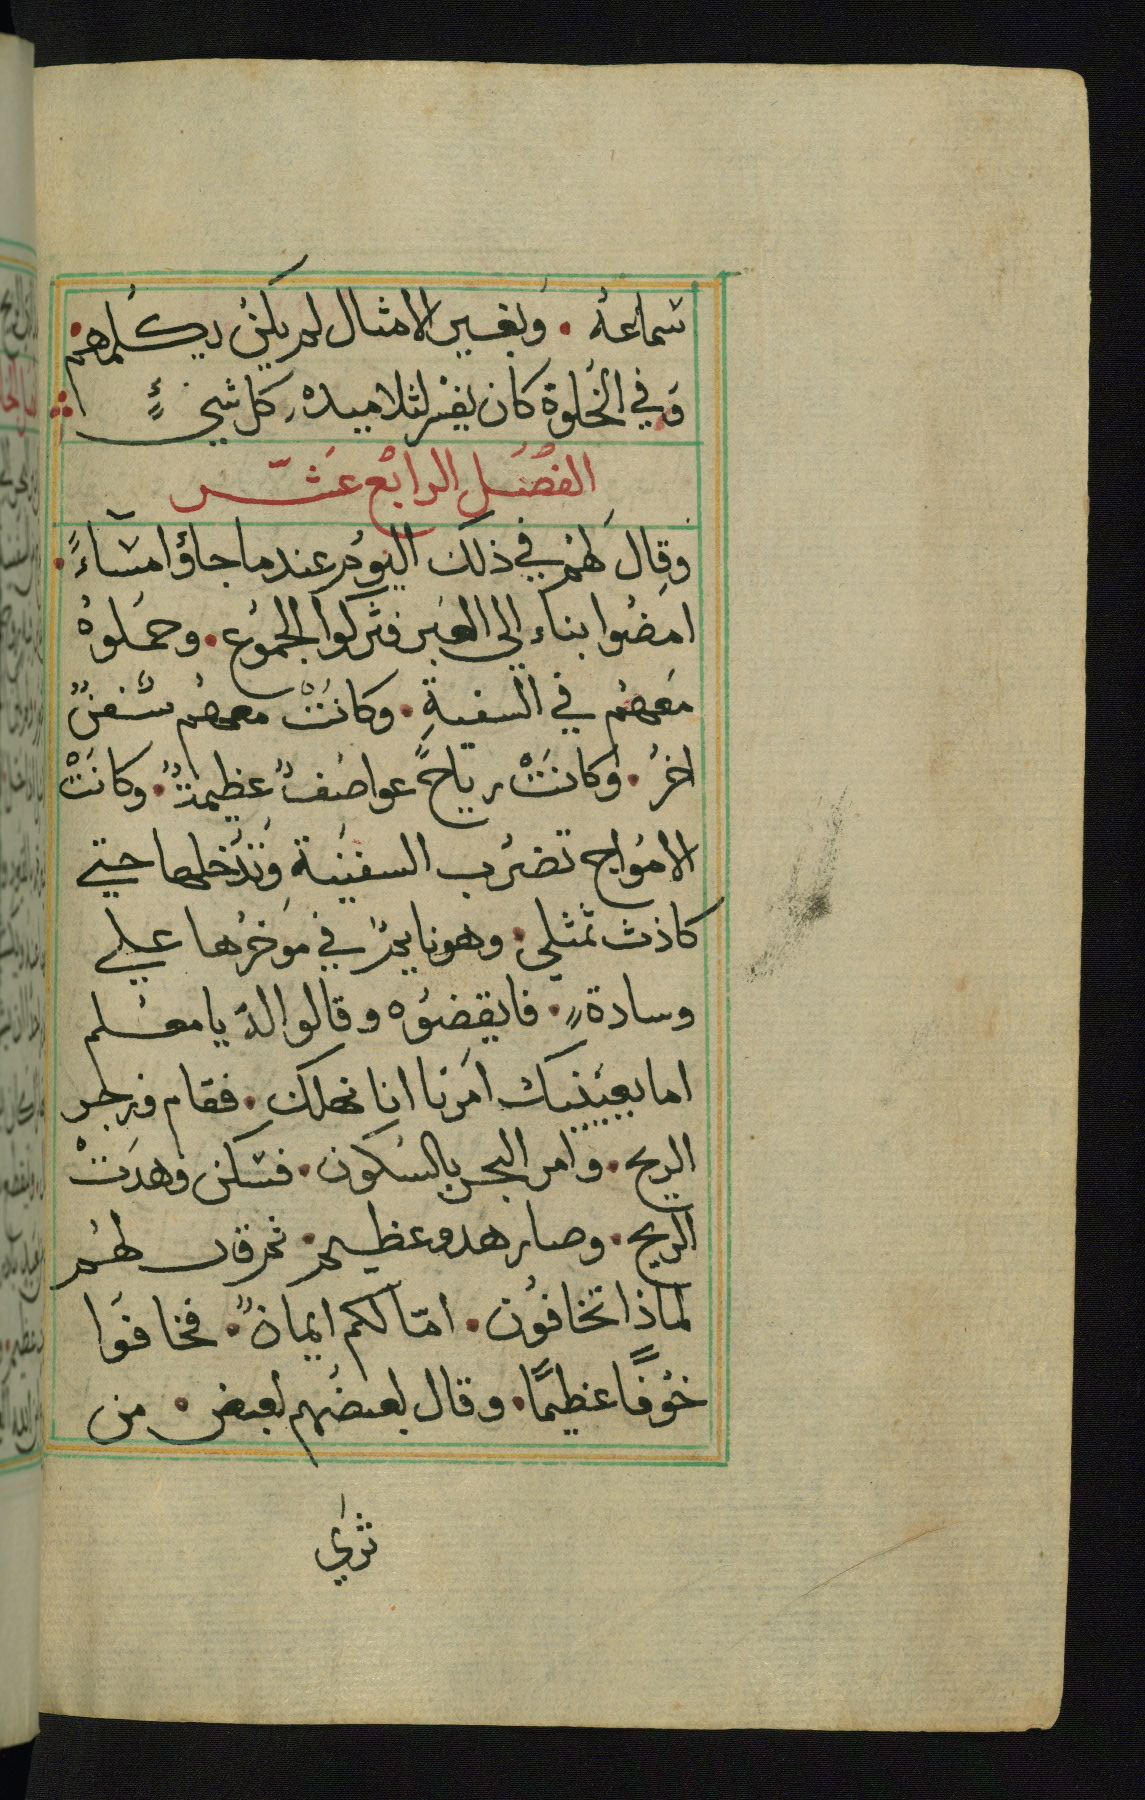 سماعهُ • وبغير الامثال لم يكن يكلمهم •
وفي الخلوة كان يفسر لتلاميده كل شيءٍ
الفصل الرابع عشر
وقال لهم في ذلك اليوم عندما جاؤ امساءً •
امضوا بناء الى العبر فتركوا الجموع • وحملوهُ
معهم في السفينةِ • وكانتْ معهم سُفنٌ
اخرُ • وكانتْ رياحً عواصفٌ عظيمةٌ • وكانتْ
الامواج تضرب السفينة وتدخلها حتي
كادت تمتلي • وهو نايمٌ في موخرها علي
وسادةٍ • فايقضوه وقالوا لهُ يا معلم
اما يعنيك امرنا انا نهلك • فقام فزجر
الريح • وامر البحر بالسكون • فسكن وهدَتْ
الريح • وصار هدو عظيم • ثم قال لهم
لماذا تخافون • امّا لكم ايمانٌ • فخافوا
خوفًا عظيمًا • وقال بعضهم لبعض • من
ترى